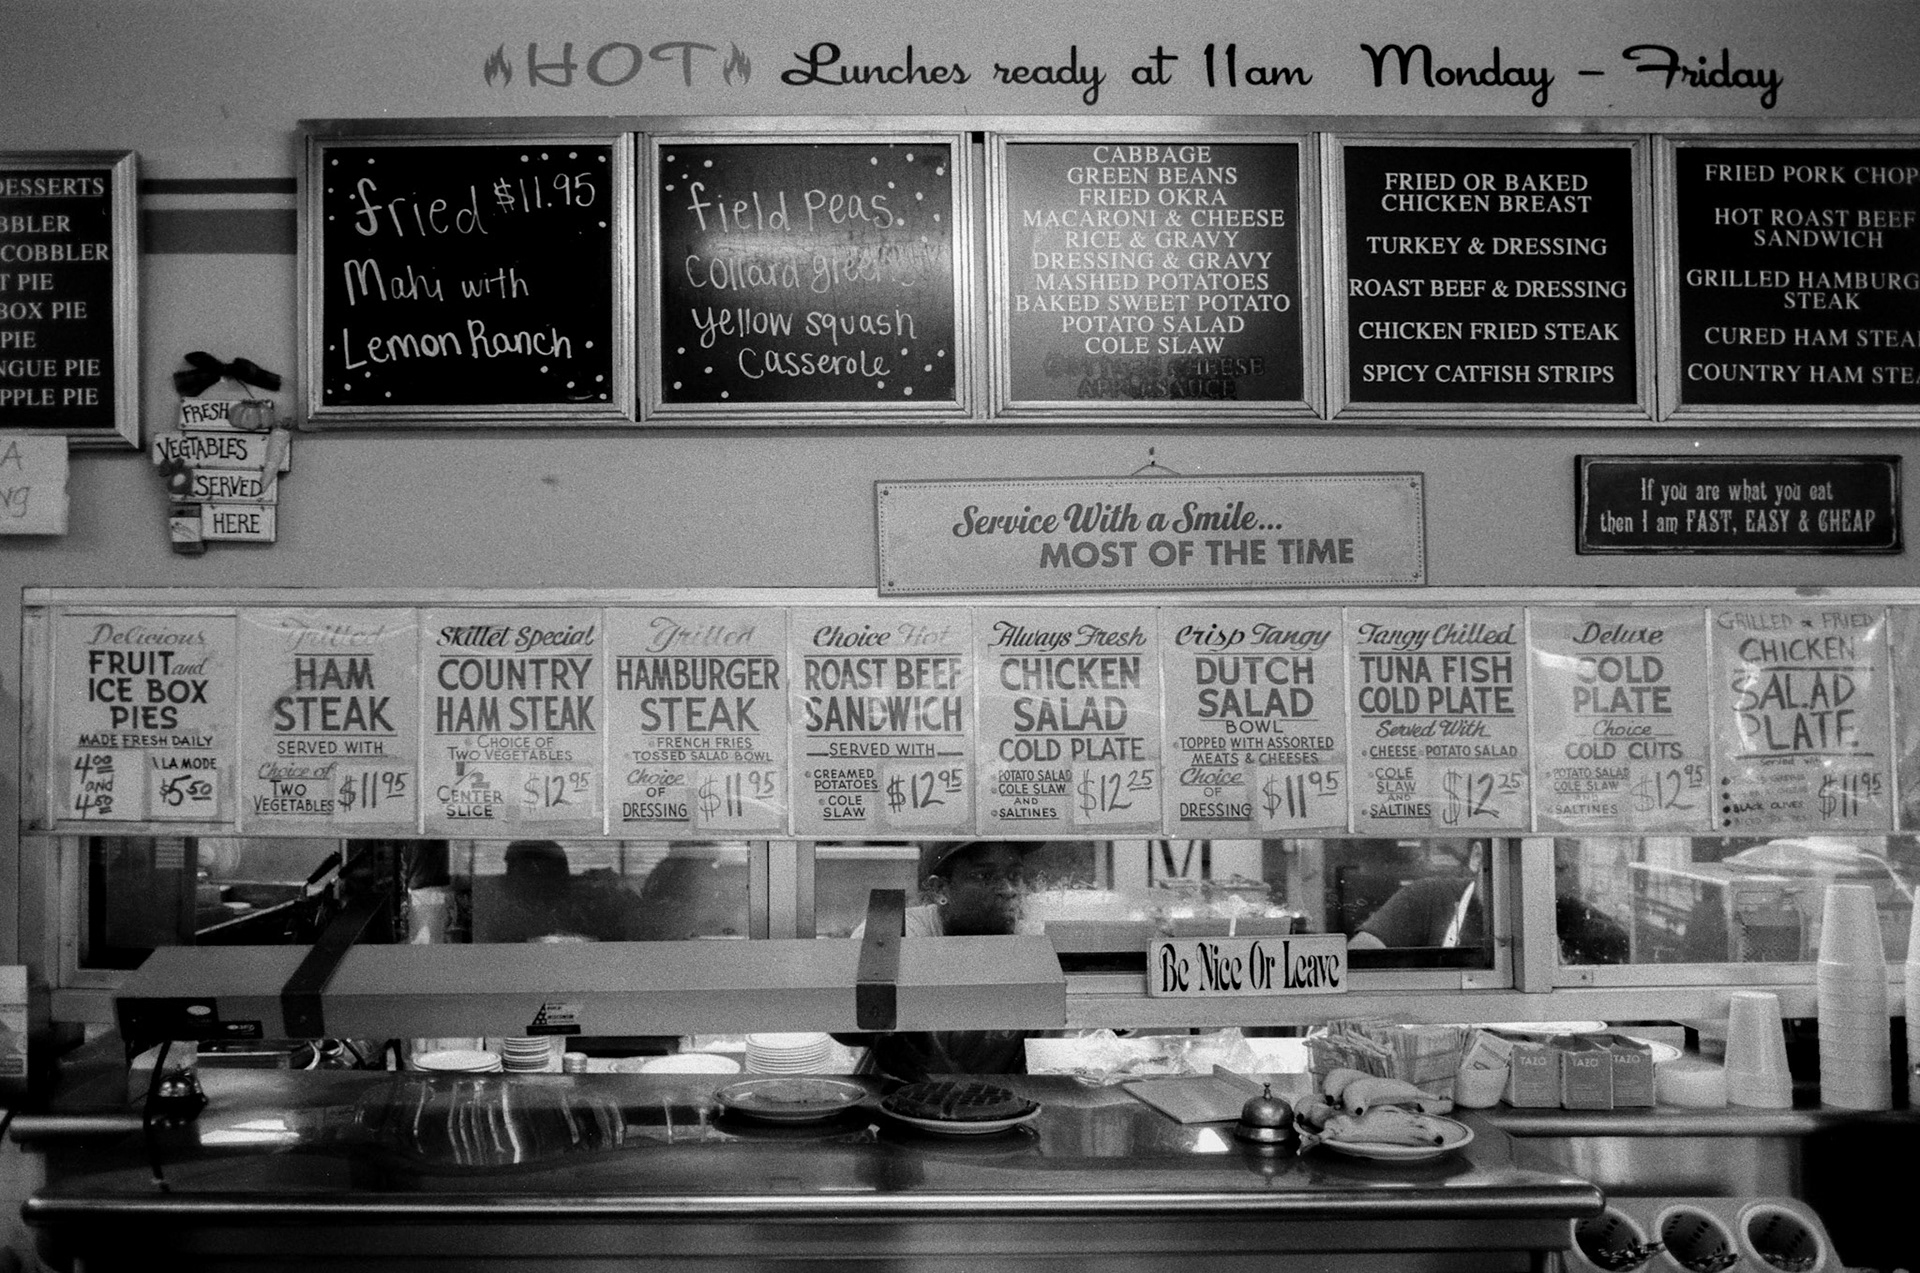 HOT Lunches ready at 11am Monday – Friday
DESSERTS
COBBLER
PIE
BOX PIE
PIE
PIE
PIE
Fried $11.95
Mahi with
Lemon Ranch
field peas
collard greens
yellow squash
casserole
CABBAGE
GREEN BEANS
FRIED OKRA
MACARONI & CHEESE
RICE & GRAVY
DRESSING & GRAVY
MASHED POTATOES
BAKED SWEET POTATO
POTATO SALAD
COLE SLAW
COTTAGE CHEESE
APPLESAUCE
FRIED OR BAKED
CHICKEN BREAST
TURKEY & DRESSING
ROAST BEEF & DRESSING
CHICKEN FRIED STEAK
SPICY CATFISH STRIPS
FRIED PORK CHOP
HOT ROAST BEEF
SANDWICH
GRILLED HAMBURG
STEAK
CURED HAM STEA
COUNTRY HAM STEA
FRESH
VEGTABLES
SERVED
HERE
A
Service With a Smile...
MOST OF THE TIME
If you are what you eat
then I am FAST, EASY & CHEAP
Delicious
FRUIT and
ICE BOX
PIES
MADE FRESH DAILY
4.00
and
4.50
\ LA MODE
$5.50
Grilled
HAM
STEAK
SERVED WITH
Choice of
TWO
VEGETABLES
$11.95
Skillet Special
COUNTRY
HAM STEAK
CHOICE OF
TWO VEGETABLES
1/2
CENTER
SLICE
$12.95
Grilled
HAMBURGER
STEAK
FRENCH FRIES
TOSSED SALAD BOWL
Choice
OF
DRESSING
$11.95
Choice Hot
ROAST BEEF
SANDWICH
SERVED WITH
CREAMED
POTATOES
COLE
SLAW
$12.95
Always Fresh
CHICKEN
SALAD
COLD PLATE
POTATO SALAD
COLE SLAW
AND
SALTINES
$12.25
Crisp Tangy
DUTCH
SALAD
BOWL
TOPPED WITH ASSORTED
MEATS & CHEESES
Choice
OF
DRESSING
$11.95
Tangy Chilled
TUNA FISH
COLD PLATE
Served With
CHEESE POTATO SALAD
COLE
SLAW
AND
SALTINES
$12.25
Deluxe
COLD
PLATE
Choice
COLD CUTS
POTATO SALAD
COLE SLAW
AND
SALTINES
$12.95
GRILLED or FRIED
CHICKEN
SALAD
PLATE
Served with
BLACK OLIVES
$11.95
Be Nice Or Leave
TAZO
TAZO
TAZO